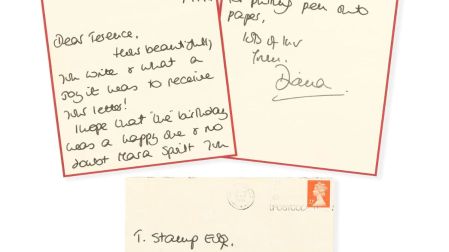 Dear Terence,
How beautifully
you write & what a
joy it was to receive
your letter!
I hope that 'the' birthday
was a happy one & no
doubt Mara Spoilt you
for putting pen onto
paper,
lots of luv
from.
Diana
T. Stamp Esq.